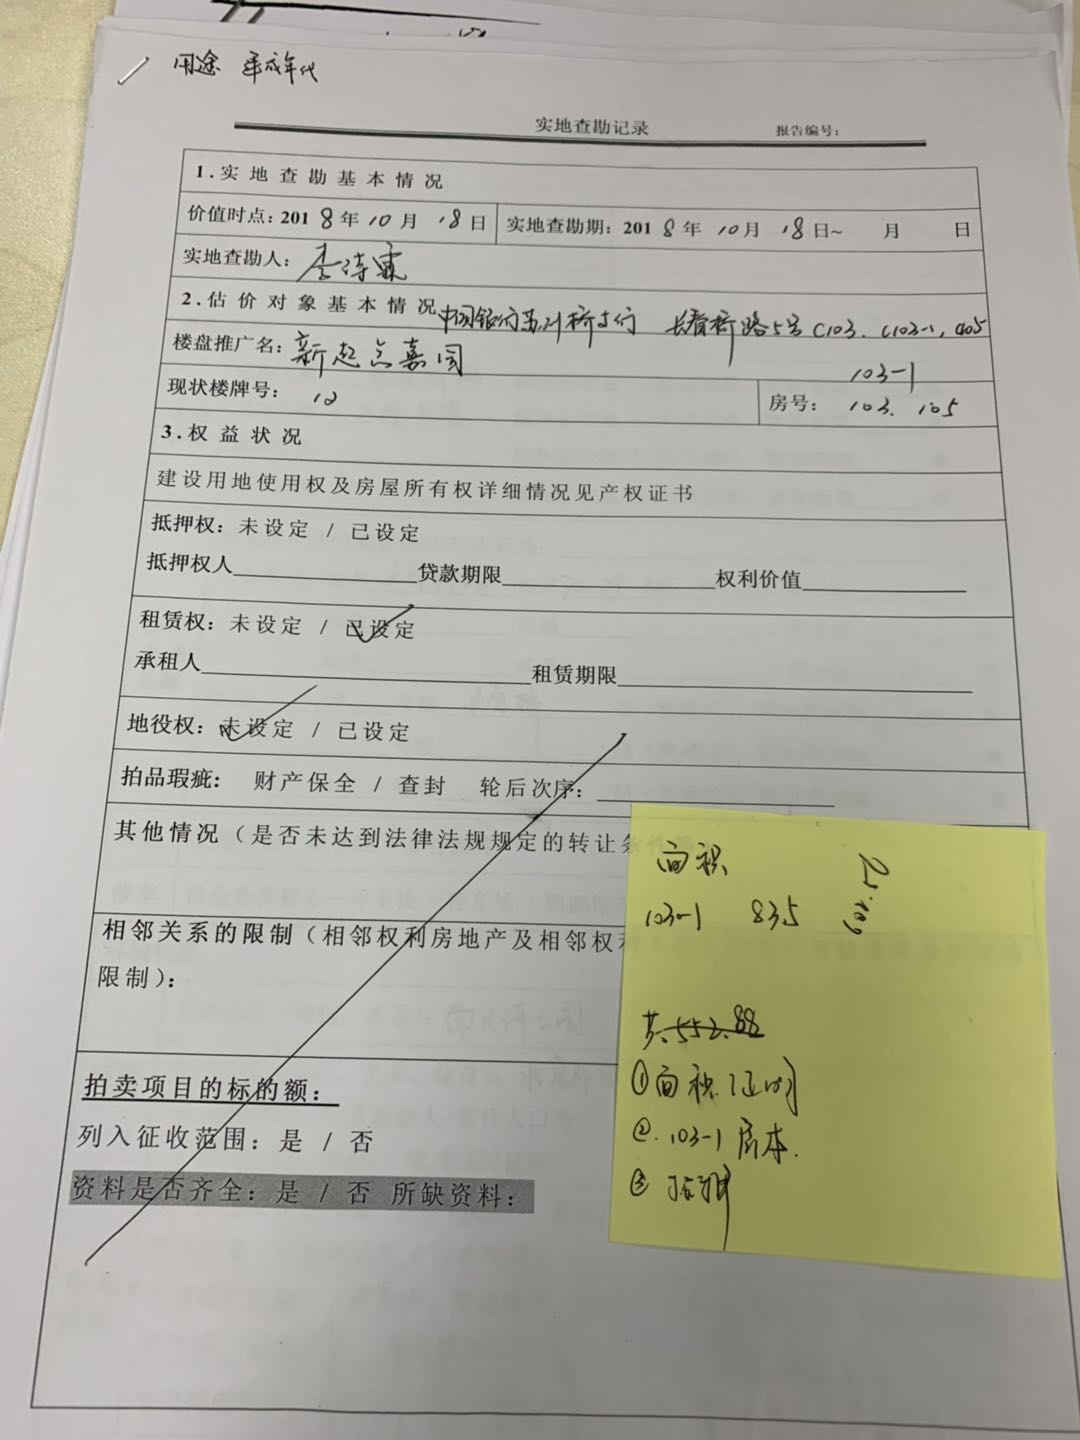 用途 建成年代
实地查勘记录 报告编号：
1.实地查勘基本情况
价值时点：2018年10月18日 实地查勘期：2018年10月18日~ 月 日
实地查勘人：
2.估价对象基本情况 中国银行苏州桥支行 长春桥路5号 C103. C103-1, C105
楼盘推广名：新起点嘉园
103-1
现状楼牌号：12 房号：103. 105
3.权益状况
建设用地使用权及房屋所有权详细情况见产权证书
抵押权：未设定 / 已设定
抵押权人 贷款期限 权利价值
租赁权：未设定 / 已设定
承租人 租赁期限
地役权：未设定 / 已设定
拍品瑕疵： 财产保全 / 查封 轮后次序：
其他情况（是否未达到法律法规规定的转让条件
相邻关系的限制（相邻权利房地产及相邻权利
限制）：
拍卖项目的标的额：
列入征收范围：是 / 否
资料是否齐全：是 / 否 所缺资料：
面积
103-1 83.5
共552.88
①面积证明
②.103-1房本.
③抵押